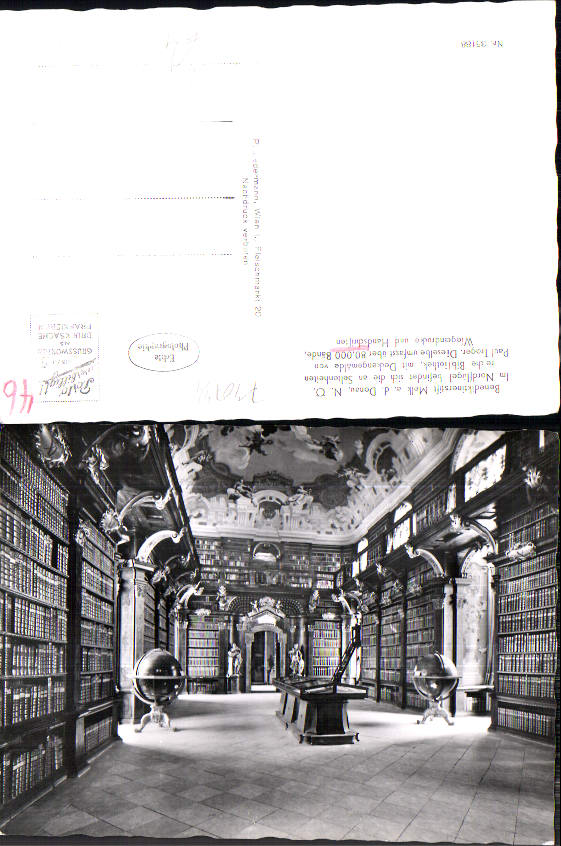 Benediktinerstift Melk a. d. Donau, N. Ö.
In Nordflügel befindet sich die an Seltenheiten
reiche Bibliothek, mit Deckengemälde von
Paul Troger. Dieselbe umfaßt über 80.000 Bände,
Wiegendrucke und Handschriften
Nr. 33188
Wien I, Fleischmarkt 20
Nachdruck verboten
Echte
Photographie
GRUSSWORTE
ALS
DRUCKSACHE
FRANKIEREN
46